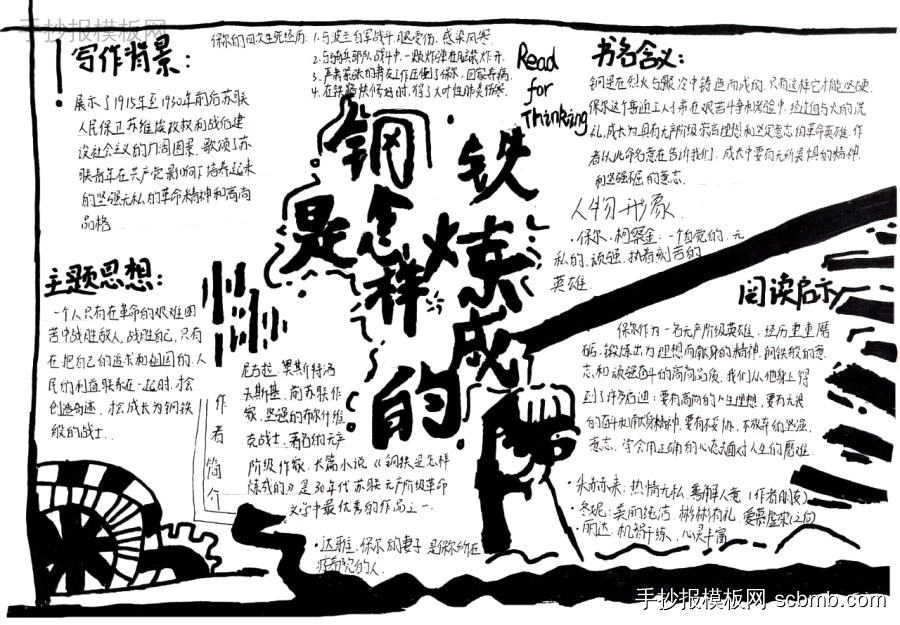 手抄报模板网
写作背景:
展示了1915年至1930年前后苏联
人民保卫苏维埃政权和战后建
设社会主义的广阔图景,歌颂了苏
联青年在共产党影响下培养起来
的坚强无私的革命精神和高尚
品格
保尔的四次生死经历:1.与波兰白军战斗,腿受伤,感染风寒
2.与骑兵部队战斗中,一颗炸弹在脑袋炸开.
3.严寒
4.在铁路抢修时,得了大叶性肺炎伤寒
Read
for
Thinking
书名含义:
钢是在烈火与骤冷中铸造而成的.只有这样它才能坚硬.
保尔这个普通工人弟在艰苦斗争和考验中,经过血与火的洗
礼,成长为具有无产阶级崇高理想和坚定意志的革命英雄.作
者以此命名意在告诉我们,成长中要有无所畏惧的精神
和坚强倔的意志.
人物形象
·保尔·柯察金:一个自觉的、无
私的、顽强、执着刻苦的
英雄.
钢铁是怎样炼成的
主题思想:
一个人只有在革命的艰难困
苦中战胜敌人,战胜自己,只有
在把自己的追求和祖国的、人
民的利益联系在一起时,才会
创造奇迹,才会成长为钢铁
般的战士..
作者简介
尼古拉·奥斯特洛
夫斯基,前苏联作
家,坚强的布尔什维
克战士,著名的无产
阶级作家,长篇小说《钢铁是怎样
炼成的》是30年代苏联无产阶级革命
文学中最优秀的作品之一.
·达雅:保尔的妻子,是保尔
的人.
阅读启示
保尔作为一名无产阶级英雄,经历重重磨
砺,锻炼出为理想而献身的精神,钢铁般的意
志和顽强奋斗的高尚品质.我们从他身上得
到了许多启迪:要有高尚的人生理想,要有无畏
的奋斗和献身精神,要有不妥协、不放弃的坚强
意志,学会用正确的心态面对人生的磨难.
·朱赫来:热情无私,善解人意(作者朋友)
·冬妮:美丽纯洁,彬彬有礼,爱慕虚荣
·丽达:机智干练、心灵丰富
手抄报模板网 scbmb.com